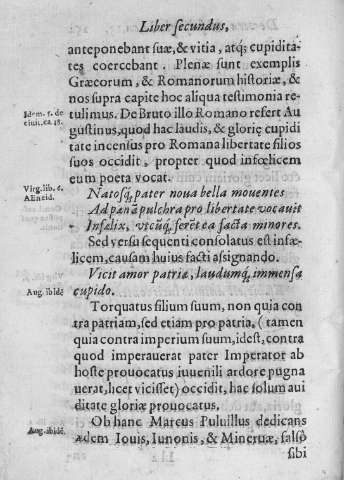 Liber secundus,
anteponebant suæ, & vitia, atq; cupidita
tes coercebant. Plenæ sunt exemplis
Græcorum, & Romanorum historiæ, &
nos supra capite hoc aliqua testimonia re
tulimus. De Bruto illo Romano refert Au
Idem. 5. de
ciuit. ca. 18.
gustinus, quod hac laudis, & glorię cupidi
tate incensus pro Romana libertate filios
suos occidit, propter quod infœlicem
eum poeta vocat.
Virg. lib. 6.
AEneid.
Natosq; pater noua bella mouentes
Ad pœnā pulchra pro libertate vocauit
Infœlix, vtcūq; ferēt ea facta minores.
Sed versu sequenti consolatus est infœ
licem, causam huius facti assignando.
Vicit amor patriæ, laudumq; immensa
Aug. ibidē
cupido.
Torquatus filium suum, non quia con
tra patriam, sed etiam pro patria, (tamen
quia contra imperium suum, idest, contra
quod imperauerat pater Imperator ab
hoste prouocatus iuuenili ardore pugna
uerat, licet vicisset) occidit, hac solum aui
ditate gloriæ prouocatus.
Ob hanc Marcus Puluillus dedicans
Aug. ibidē.
ædem Iouis, Iunonis, & Mineruæ, falsò
sibi